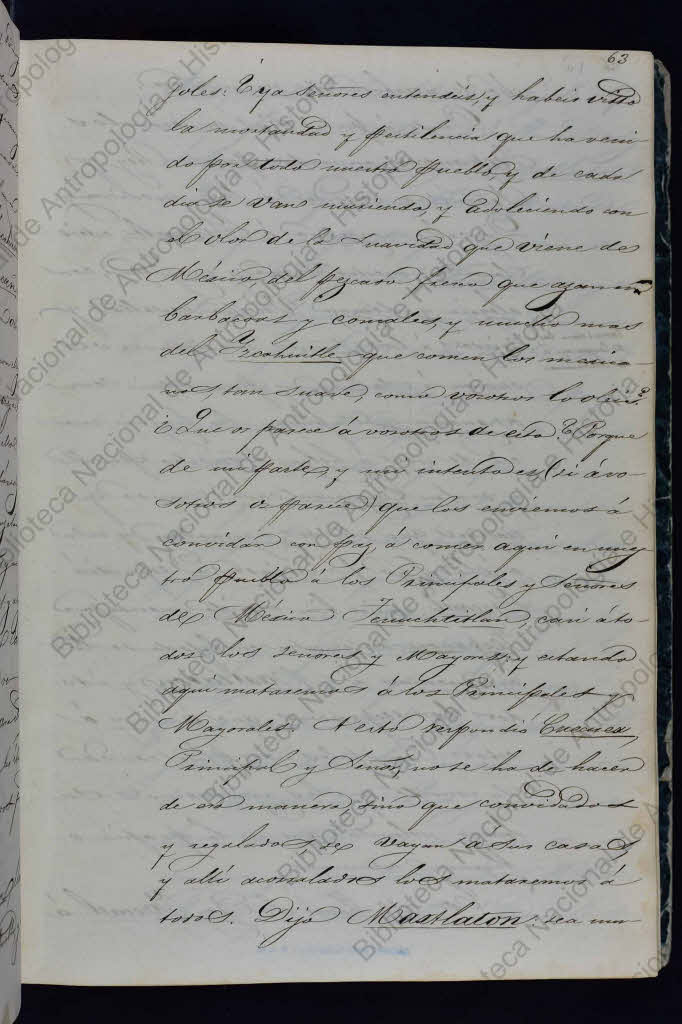 63
poles: E ya Señores entendéis, y habeis visto
la mortandad y pestilencia que ha veni-
do por todo nuestro Pueblo, y de cada
dia se van muriendo, y adoleciendo con
el olor de la suavidad que viene de
México, del pezcado freno que azan en
barbacoas y comales, y mucho mas
del Yzcahuitle que comen los mexica-
nos, tan suave, como vosotros lo oleis.
¿Que os parece á vosotros de esto? Porque
de mi parte, y mi intento es (si á vo-
sotros os parece) que los enviemos á
convidar con paz á comer aqui en nues-
tro Pueblo á los Principales y Señores
de México Tenuchtitlan, casi á to-
dos los señores y Mayores: y estando
aqui mataremos á los Principales y
Mayorales. A esto respondio Cuecuex,
Principal y Señor, no se ha de hacer
de esa manera, sino que convidados
y regalados, se vayan á sus casas,
y alli acorralados los mataremos á
todos. Dijo Maxtlaton: sea mu-
Biblioteca Nacional de Antropología e Historia